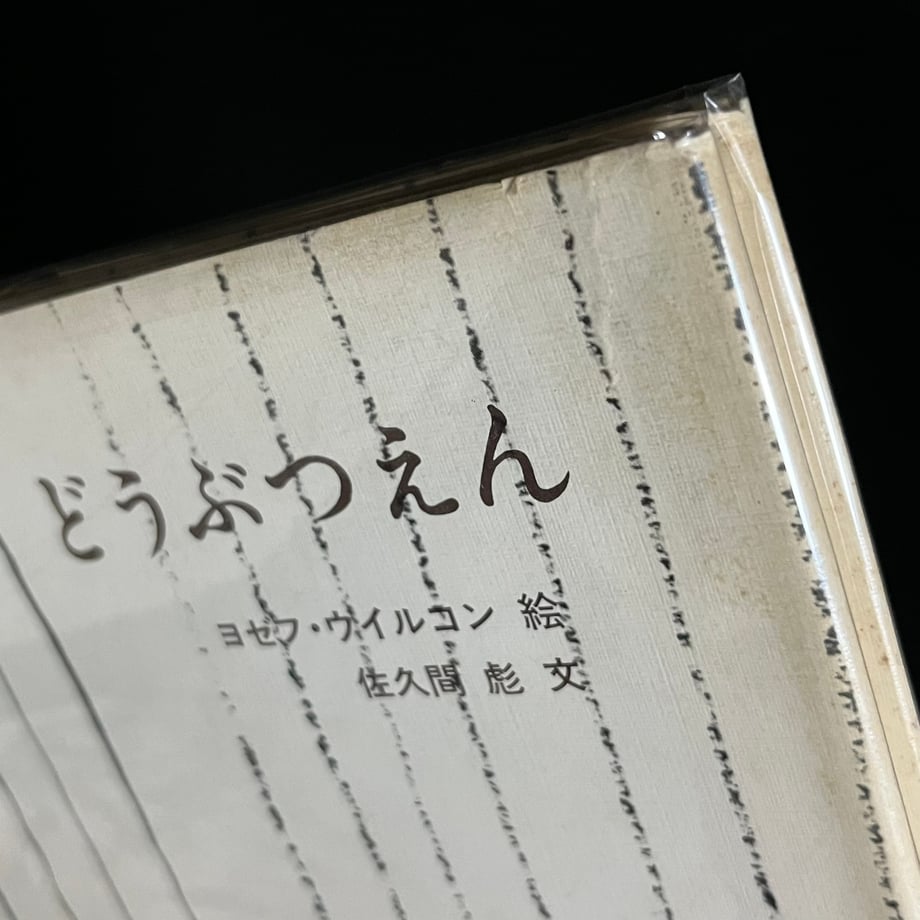 どうぶつえん
ヨゼフ・ウイルコン 絵
佐久間 彪 文